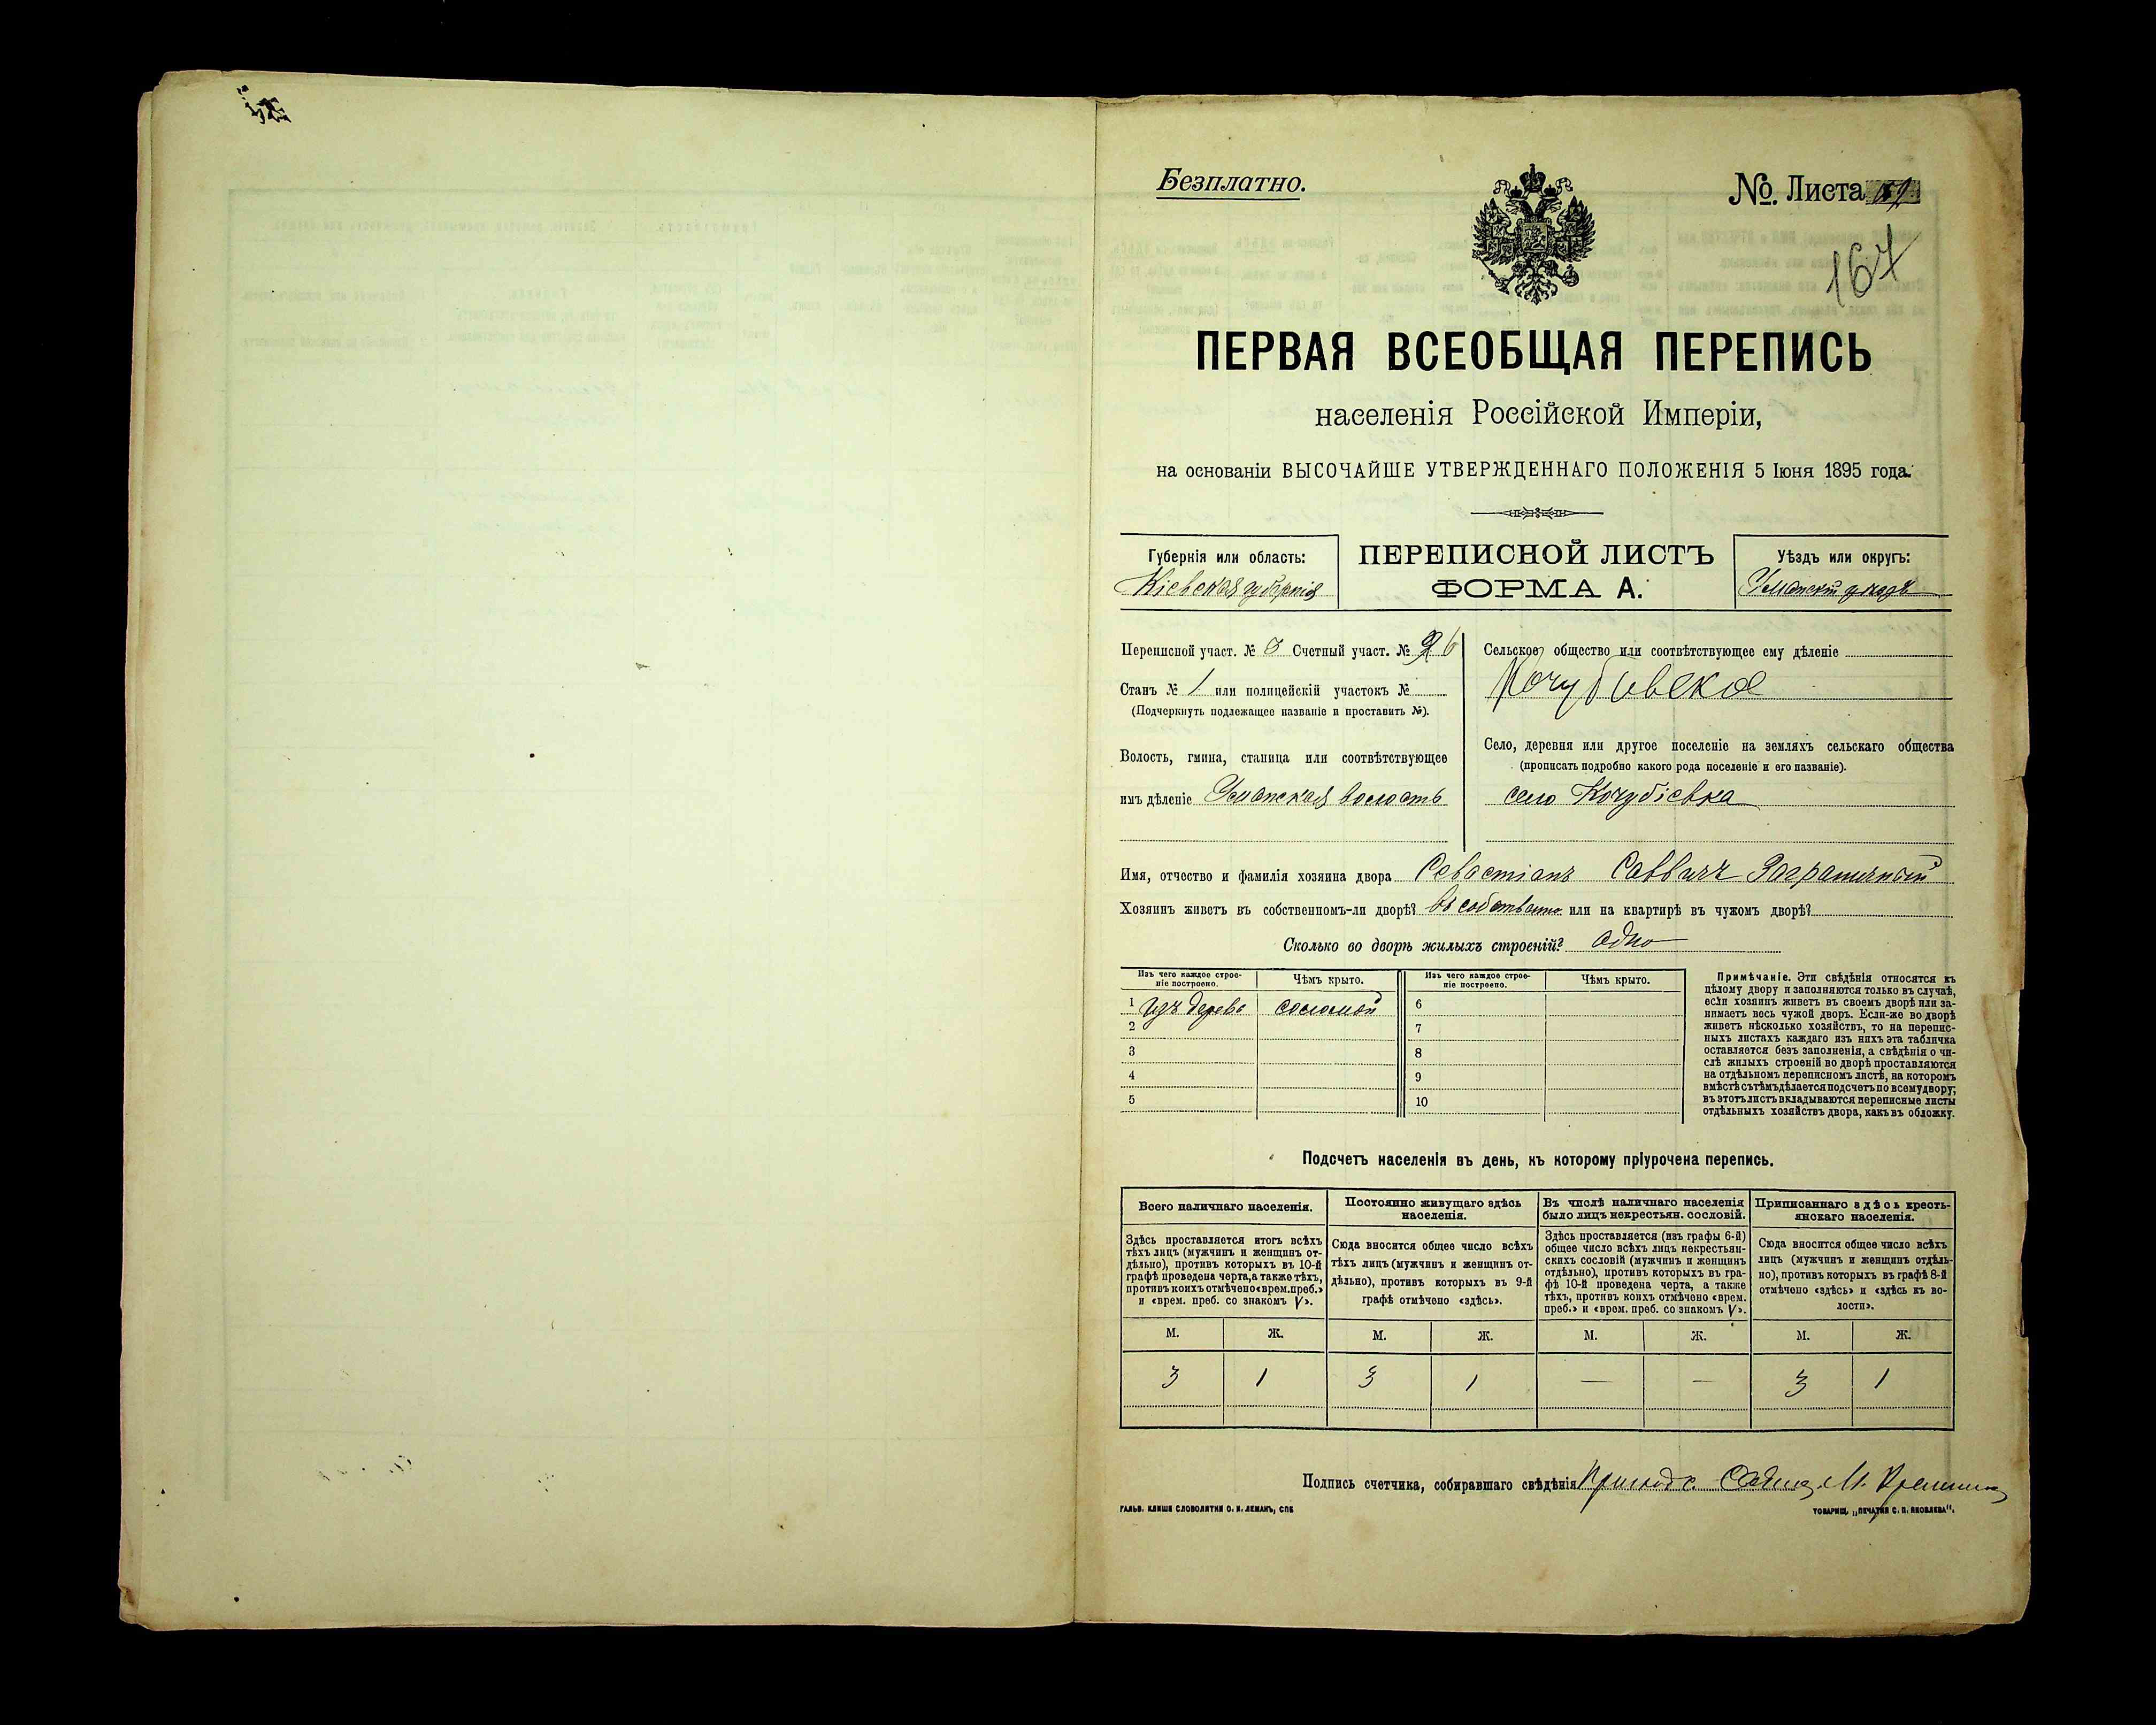 Безплатно.
№. Листа
167
ПЕРВАЯ ВСЕОБЩАЯ ПЕРЕПИСЬ
населенія Россійской Имперіи,
на основаніи ВЫСОЧАЙШЕ УТВЕРЖДЕННАГО ПОЛОЖЕНІЯ 5 Іюня 1895 года.
Губернія или область:
Кіевская губернія
ПЕРЕПИСНОЙ ЛИСТЪ
ФОРМА А.
Уѣздъ или округъ:
Уманскій уѣздъ
Переписной участ. № 3 Счетный участ. № 26
Станъ № 1 или полицейскій участокъ №
(Подчеркнуть подлежащее названіе и проставить №).
Волость, гмина, станица или соотвѣтствующее
имъ дѣленіе Уманская волость
Сельское общество или соотвѣтствующее ему дѣленіе
Кочубіевское
Село, деревня или другое поселеніе на земляхъ сельскаго общества
(прописать подробно какого рода поселеніе и его названіе).
село Кочубіевка
Имя, отчество и фамилія хозяина двора Севастіанъ Саввичъ Заграничный
Хозяинъ живетъ въ собственномъ-ли дворѣ? въ собственно или на квартирѣ въ чужомъ дворѣ?
Сколько во дворѣ жилыхъ строеній? одно
Изъ чего каждое строе-
ніе построено.
Чѣмъ крыто.
Изъ чего каждое строе-
ніе построено.
Чѣмъ крыто.
1 изъ дерева соломой 6
2 7
3 8
4 9
5 10
Примѣчаніе. Эти свѣдѣнія относятся къ
цѣлому двору и заполняются только въ случаѣ,
если хозяинъ живетъ въ своемъ дворѣ или за-
нимаетъ весь чужой дворъ. Если-же во дворѣ
живетъ нѣсколько хозяйствъ, то на перепис-
ныхъ листахъ каждаго изъ нихъ эта табличка
оставляется безъ заполненія, а свѣдѣнія о чи-
слѣ жилыхъ строеній во дворѣ проставляются
на отдѣльномъ переписномъ листѣ, на которомъ
вмѣстѣ съ тѣмъ дѣлается подсчетъ по всему двору;
въ этотъ листъ вкладываются переписные листы
отдѣльныхъ хозяйствъ двора, какъ въ обложку.
Подсчетъ населенія въ день, къ которому пріурочена перепись.
Всего наличнаго населенія.
Здѣсь проставляется итогъ всѣхъ
тѣхъ лицъ (мужчинъ и женщинъ от-
дѣльно), противъ которыхъ въ 10-й
графѣ проведена черта, а также тѣхъ,
противъ коихъ отмѣчено «врем. преб.»
и «врем. преб. со знакомъ V».
Постоянно живущаго здѣсь
населенія.
Сюда вносится общее число всѣхъ
тѣхъ лицъ (мужчинъ и женщинъ от-
дѣльно), противъ которыхъ въ 9-й
графѣ отмѣчено «здѣсь».
Въ числѣ наличнаго населенія
было лицъ некрестьян. сословій.
Здѣсь проставляется (изъ графы 6-й)
общее число всѣхъ лицъ некрестьян-
скихъ сословій (мужчинъ и женщинъ
отдѣльно), противъ которыхъ въ гра-
фѣ 10-й проведена черта, а также
тѣхъ, противъ коихъ отмѣчено «врем.
преб.» и «врем. преб. со знакомъ V».
Приписаннаго здѣсь кресть-
янскаго населенія.
Сюда вносится общее число всѣхъ
лицъ (мужчинъ и женщинъ отдѣль-
но), противъ которыхъ въ графѣ 8-й
отмѣчено «здѣсь» и «здѣсь къ во-
лости».
М. Ж. М. Ж. М. Ж. М. Ж.
3 1 3 1 — — 3 1
Подпись счетчика, собиравшаго свѣдѣнія
ГАЛЬВ. КЛИШЕ СЛОВОЛИТНИ О. И. ЛЕМАНЪ, СПБ
ТОВАРИЩ. „ПЕЧАТНЯ С. П. ЯКОВЛЕВА".